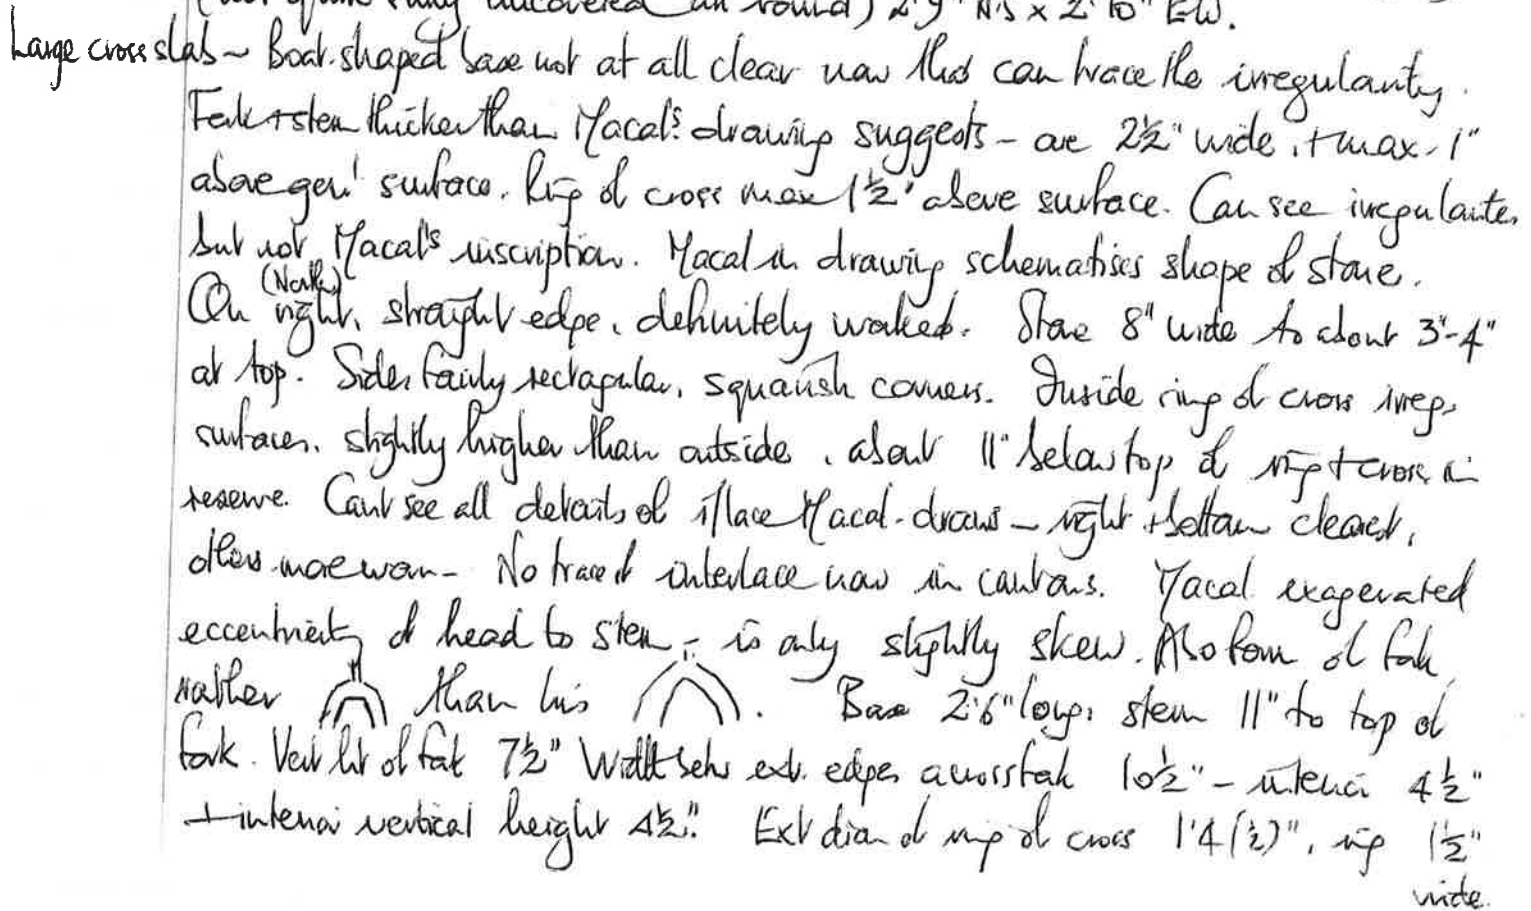 (not quite fully uncovered all round) 2'9" NS x 2'10" EW.
Large cross slab ~ Boat-shaped base not at all clear now tho' can trace the irregularity.
Fork + stem thicker than Macal's drawing suggests - are 2½" wide, + max. 1"
above gen'l surface. Ring of cross max 1½" above surface. Can see irregularites
but not Macal's inscription. Macal in drawing schematises shape of stone.
On right (North), straight edge, definitely worked. Stone 8" wide to about 3"-4"
at top. Sides fairly rectagular, squarish corners. Inside ring of cross irreg.
surfaces, slightly higher than outside, about 1" below top of ring + cross in
reserve. Can't see all details of i'lace Macal. draws - right + bottom clearest,
others more worn - No trace of interlace now in cantons. Macal. exagerated
eccentricity of head to stem - is only slightly skew. Also form of fork
rather than his . Base 2'6" long, stem 11" to top of
fork. Vert ht of fork 7½" Width betw ext. edges across fork 10½" - interior 4½"
+ interior vertical height 4½". Ext diam of ring of cross 1'4(½)", ring 1½"
wide.